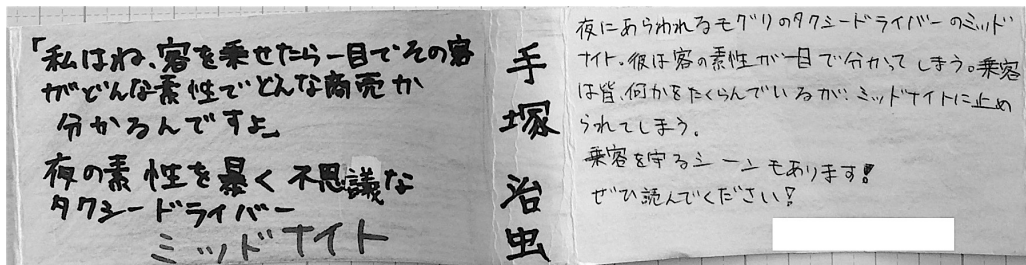 「私はね、客を乗せたら一目でその客
がどんな素性でどんな商売か
分かるんですよ」
夜の素性を暴く不思議な
タクシードライバー
ミッドナイト
手塚治虫
夜にあらわれるモグリのタクシードライバーのミッド
ナイト。彼は客の素性が一目で分かってしまう。乗客
は皆、何かをたくらんでいるが、ミッドナイトに止め
られてしまう。
乗客を守るシーンもあります!
ぜひ読んでください!